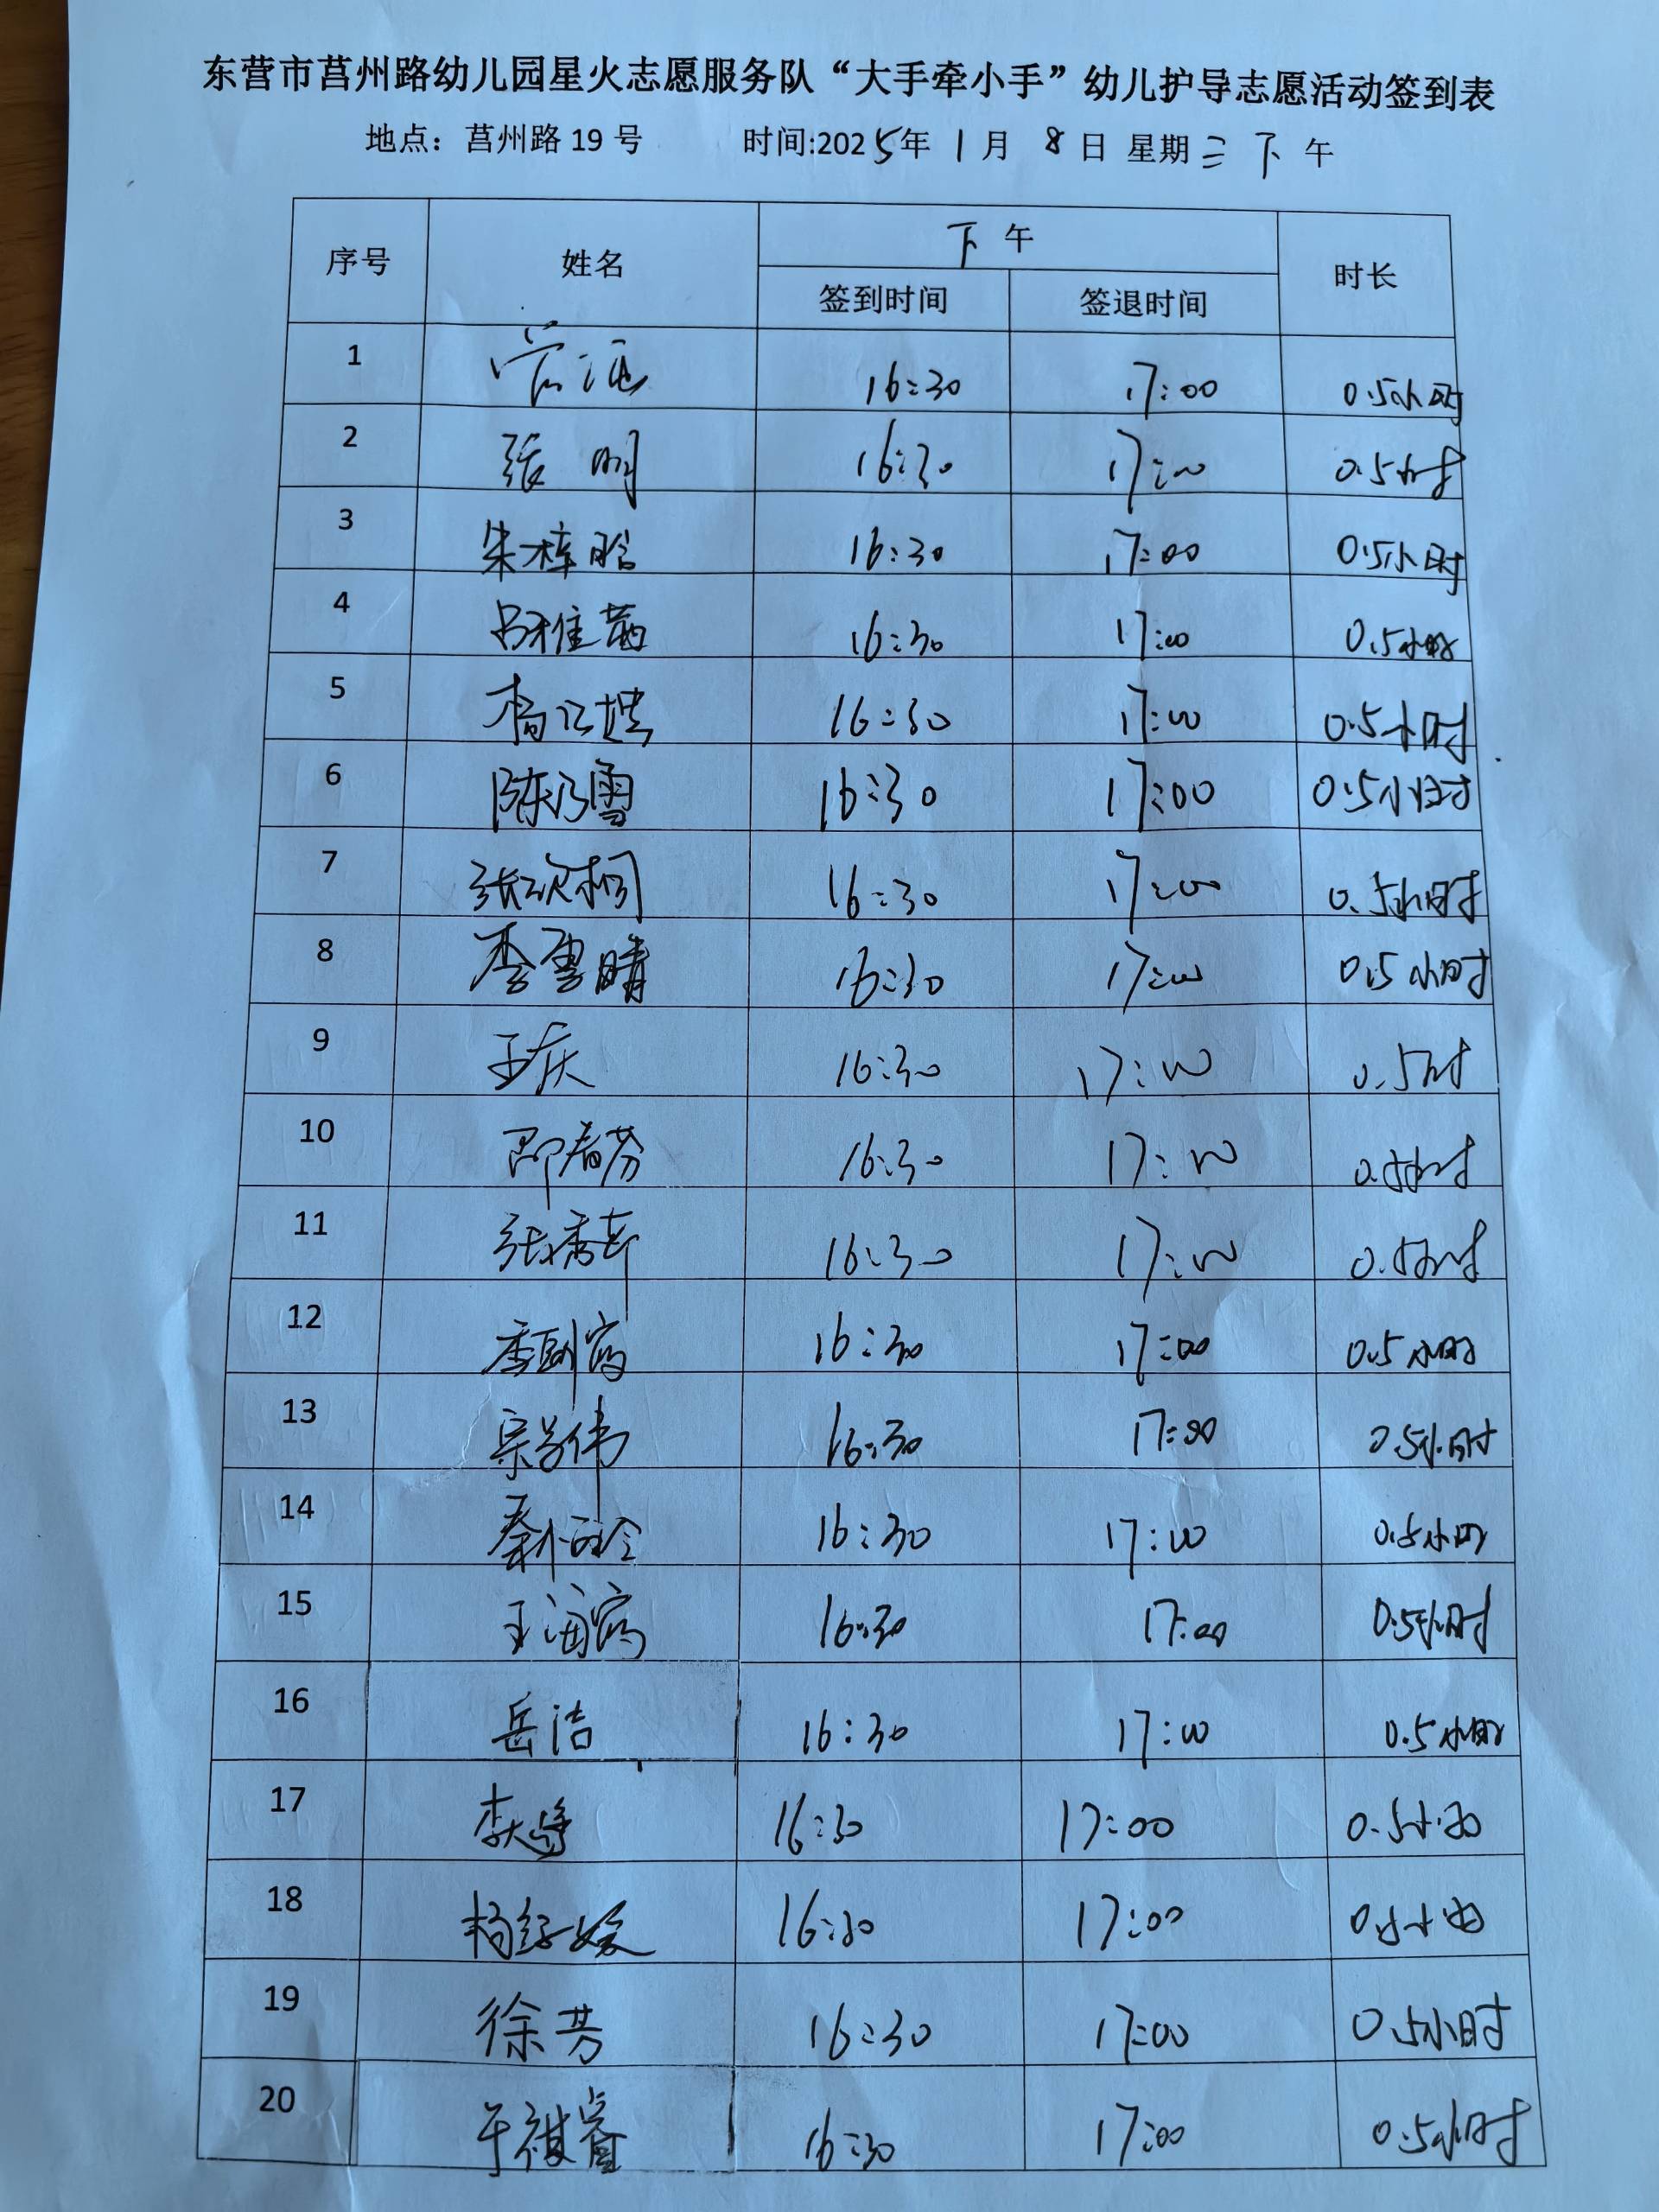 东营市莒州路幼儿园星火志愿服务队“大手牵小手”幼儿护导志愿活动签到表
地点：莒州路 19 号 时间:2025年 1 月 8 日 星期 三 下 午
序号 姓名 下 午 时长
签到时间 签退时间
1 16:30 17:00 0.5小时
2 张明 16:30 17:00 0.5小时
3 朱梓晗 16:30 17:00 0.5小时
4 吕雅茜 16:30 17:00 0.5小时
5 杨 16:30 17:00 0.5小时
6 陈乃雪 16:30 17:00 0.5小时
7 张 桐 16:30 17:00 0.5小时
8 李雪晴 16:30 17:00 0.5小时
9 王庆 16:30 17:00 0.5时
10 邵春芬 16:30 17:00 0.5小时
11 张秀 16:30 17:00 0.5小时
12 李 16:30 17:00 0.5小时
13 宗 伟 16:30 17:00 0.5小时
14 秦 16:30 17:00 0.5小时
15 王海 16:30 17:00 0.5小时
16 岳洁 16:30 17:00 0.5小时
17 李 16:30 17:00 0.5小时
18 杨 16:30 17:00 0.5小时
19 徐芳 16:30 17:00 0.5小时
20 于祺睿 16:30 17:00 0.5小时